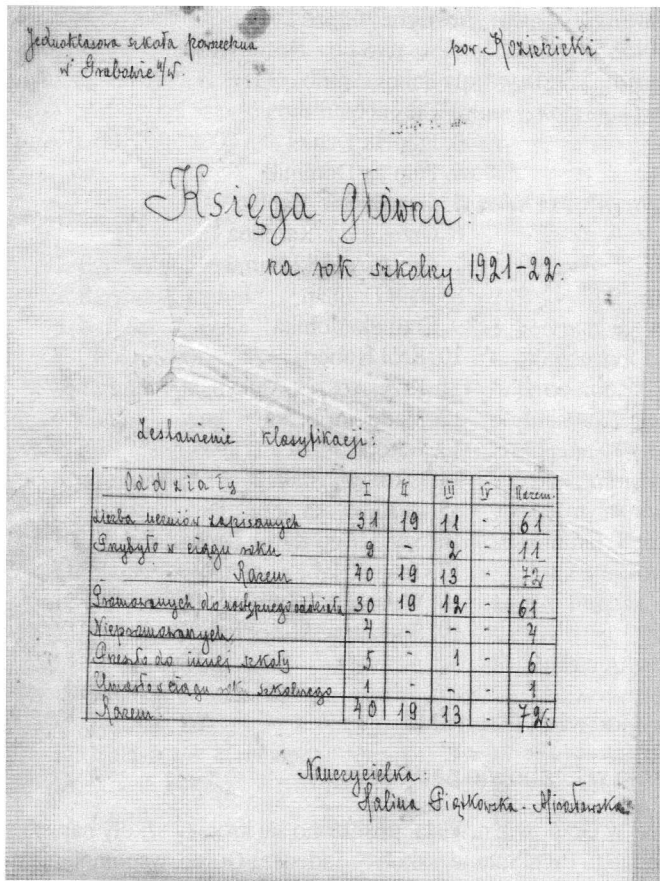 Jednoklasowa szkoła powszechna
w Grabowie n/W.
pow. Kozienicki
Księga główna
na rok szkolny 1921-22r.
Zestawienie klasyfikacji:
Oddziały I II III IV Razem.
Liczba uczniów zapisanych 31 19 11 - 61
Przybyło w ciągu roku 9 - 2 - 11
Razem 40 19 13 - 72
Promowanych do następnego oddziału 30 19 12 - 61
Niepromowanych 4 - - - 4
Przeszło do innej szkoły 5 - 1 - 6
Umarło w ciągu rok. szkolnego 1 - - - 1
Razem. 40 19 13 - 72.
Nauczycielka:
Halina Piątkowska-